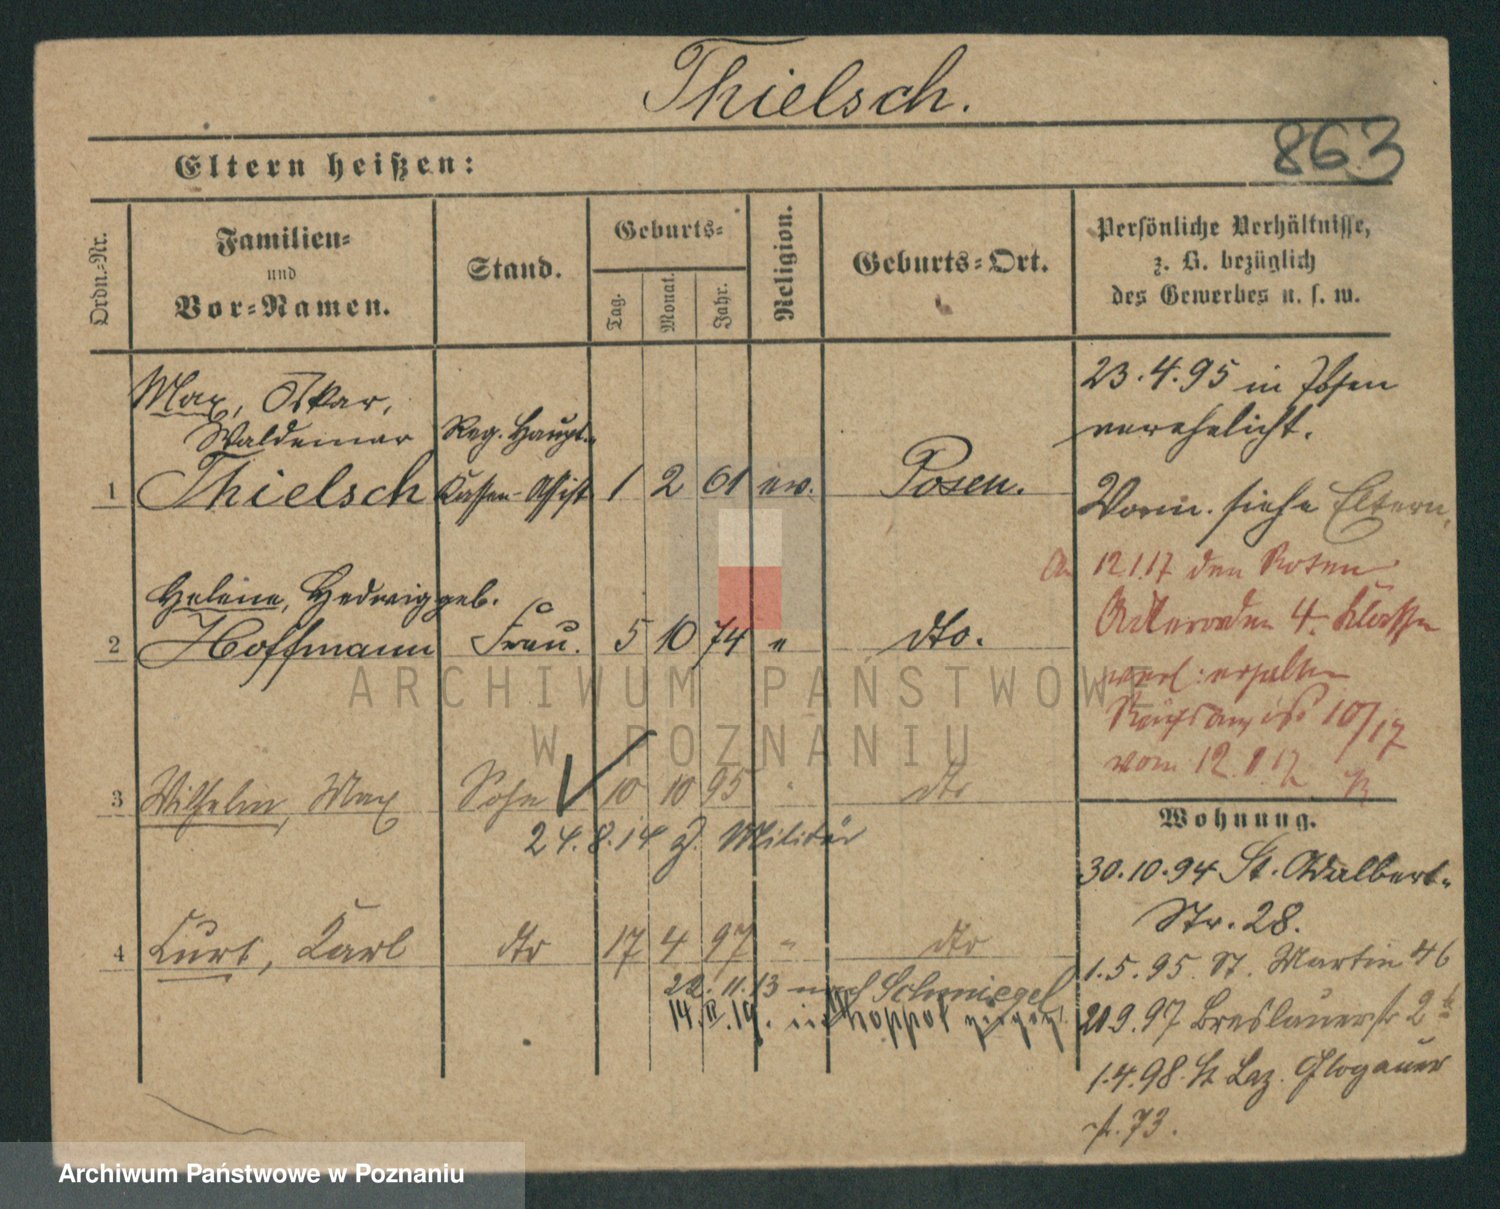 Thielsch.
863
Eltern heißen:
Ordn.-Nr.
Familien-
und
Vor-Namen.
Stand.
Geburts-
Tag.
Monat.
Jahr.
Religion.
Geburts-Ort.
Persönliche Verhältnisse,
z. B. bezüglich
des Gewerbes u. s. w.
Max, Oskar,
Waldemar
1 Thielsch
Reg. Haupt-
Kassen-Assist.
1 2 61 ev. Posen.
23.4.95 in Posen
verehelicht.
Vorm. siehe Eltern.
Helene, Hedwig geb.
2 Hoffmann Frau. 5 10 74 e dto.
12.1.17 den Roten
Adlerorden 4. Klasse
verl: erhalten
10/17
vom 12.1.17
3 Wilhelm, Max Sohn 10 10 95 " dto
24.8.14 z. Militär
4 Curt, Karl dto 17 4 97 " dto
22.11.13 nach Schmiegel
Wohnung.
30.10.94 St. Adalbert-
Str. 28.
1.5.95 St. Martin 46
9.97 Breslauerstr 2
1.4.98 St Laz. Glogauer
str. 73.
ARCHIWUM PAŃSTWOWE
W POZNANIU
Archiwum Państwowe w Poznaniu